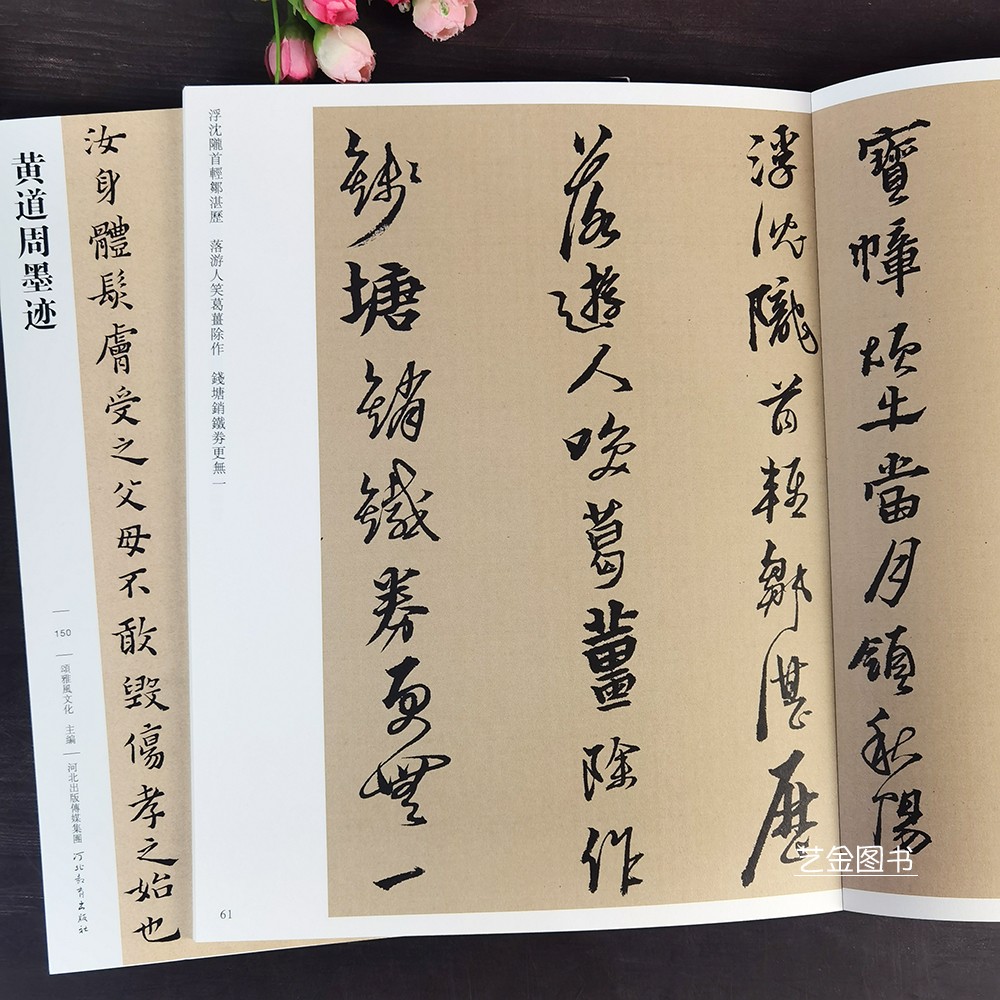 寶幢煩生當月領秋陽
浮沈隴首輕鄒湛歷
落遊人笑葛薑除作
錢塘銷鐵券更無一
浮沈隴首輕鄒湛歷　落游人笑葛薑除作　錢塘銷鐵券更無一
61
汝身體髮膚受之父母不敢毀傷孝之始也
黄道周墨迹
150
頌雅風文化　主編
河北出版傳媒集團
河北教育出版社
艺金图书